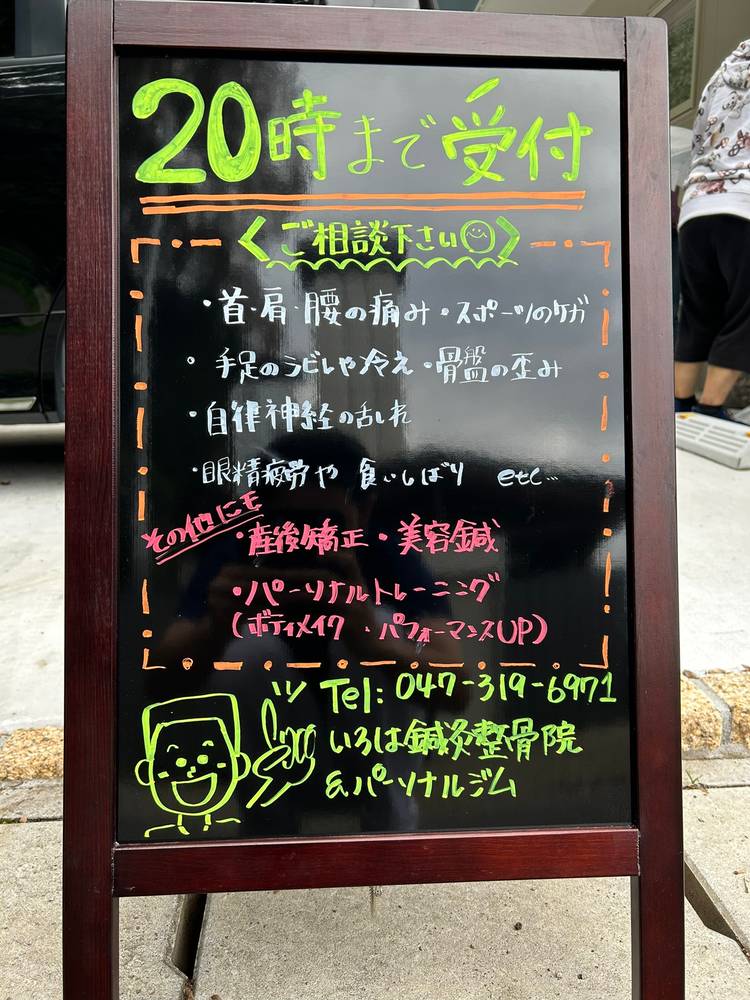 20時まで受付
<ご相談下さい>
・首・肩・腰の痛み・スポーツのケガ
・手足のシビレや冷え・骨盤の歪み
・自律神経の乱れ
・眼精疲労や 食いしばり etc...
その他にモ
・産後矯正・美容鍼
・パーソナルトレーニング
(ボディメイク・パフォーマンスUP)
Tel: 047-319-6971
いろは鍼灸整骨院
&パーソナルジム